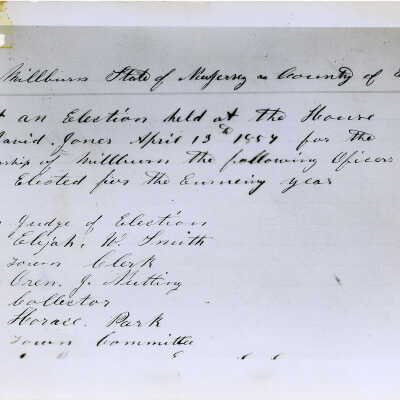 Millburn State of New Jersey County of
an Election held at the House
David Jones April 13th 1857 for the
of Millburn the following Oficers
Elected for the Ensueing year
Judge of Election
Elijah. W. Smith
Town Clerk
Oren. J. Nutting
Collector
Horace. Park
Town Committee